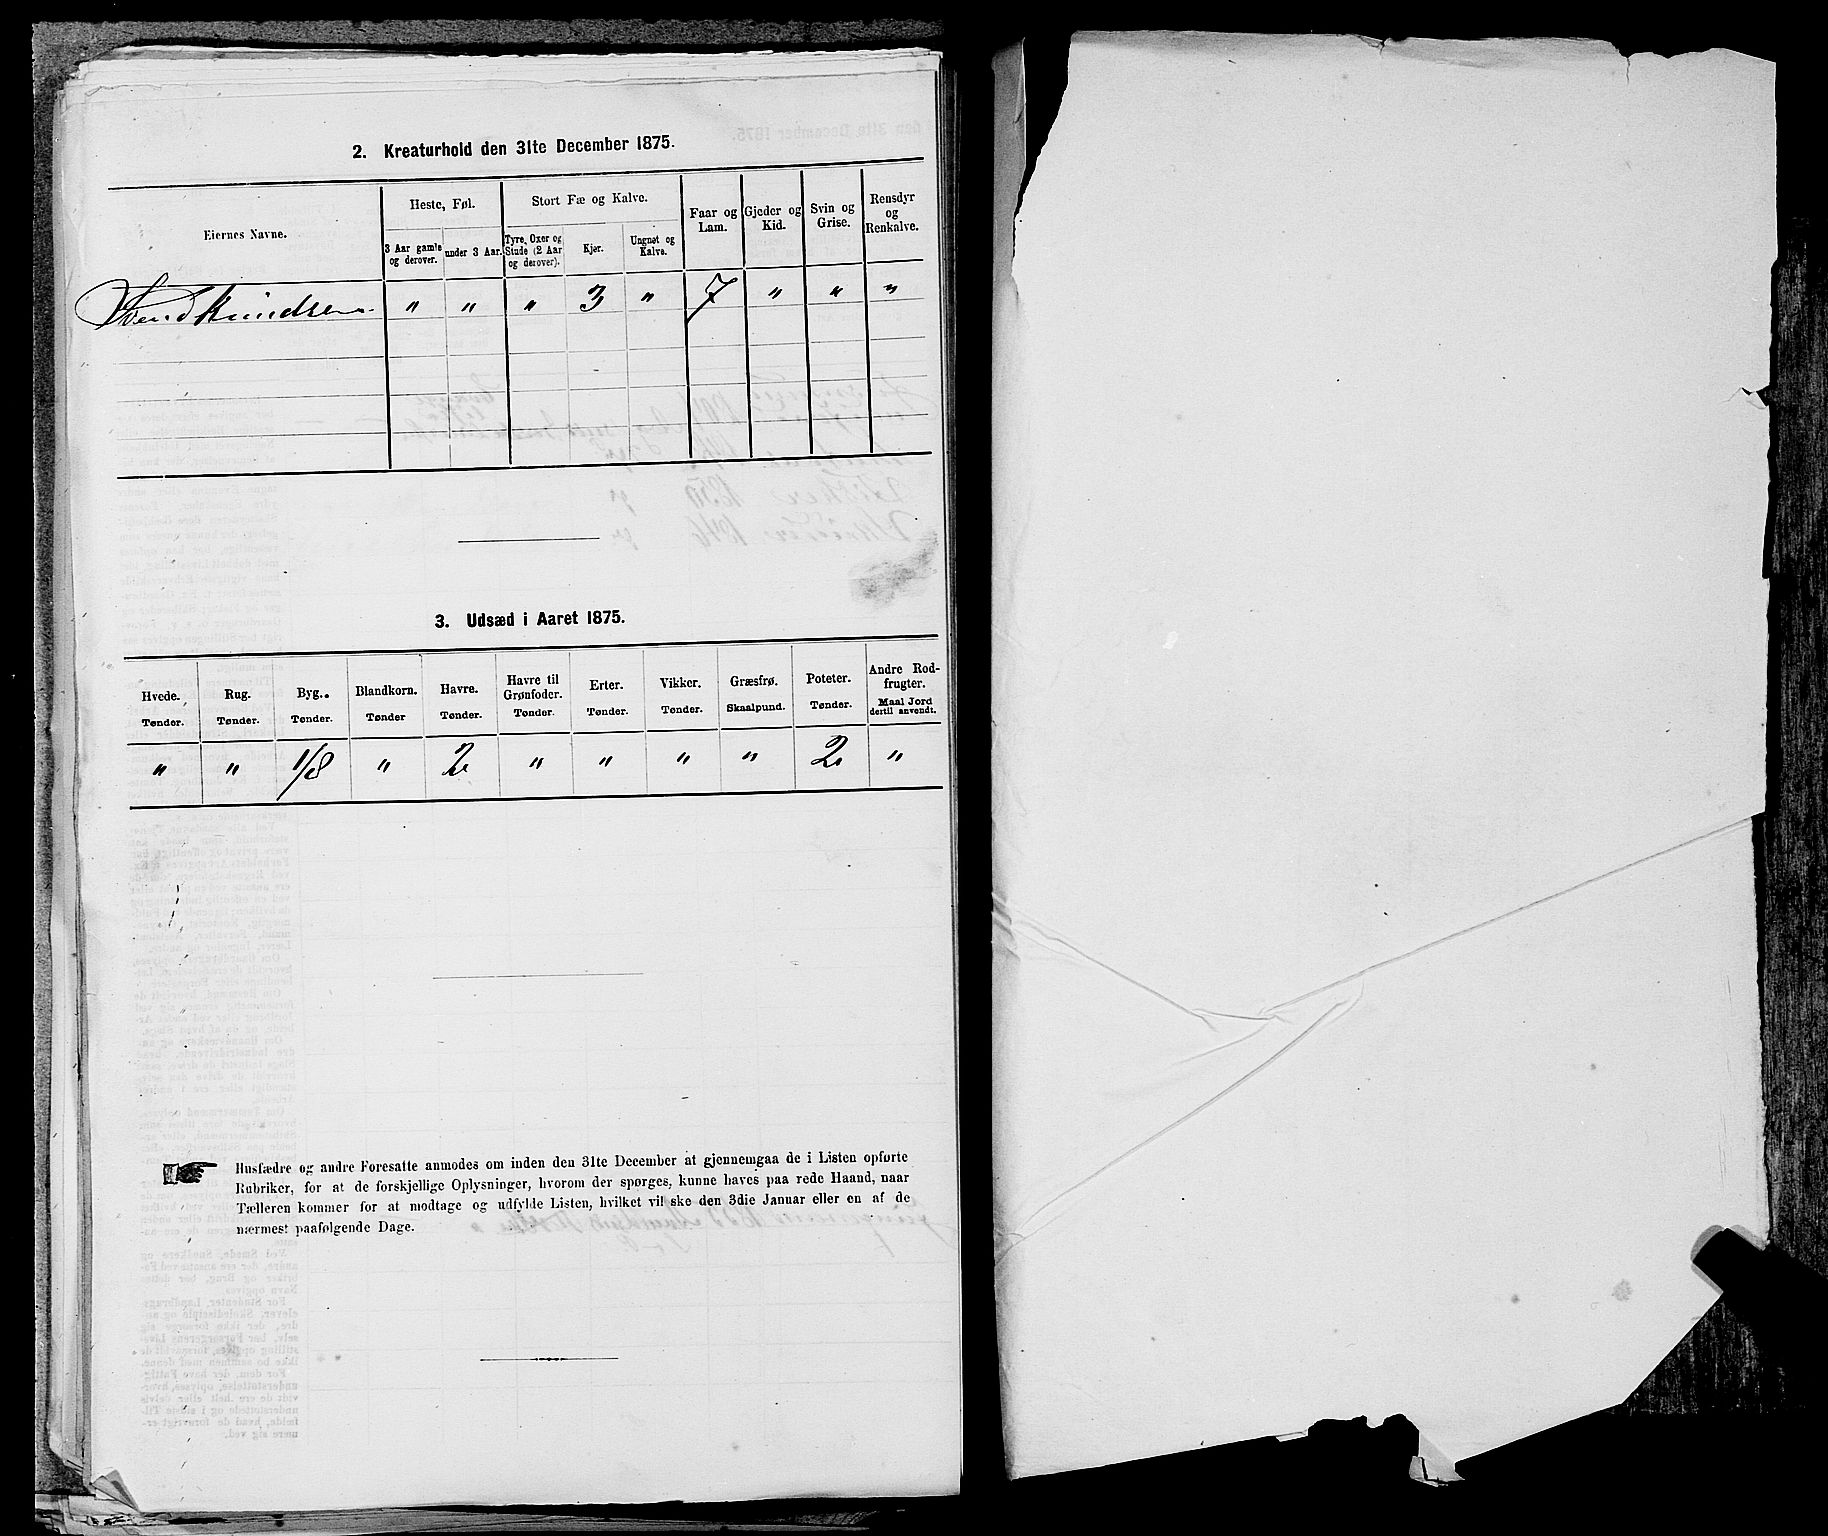 2. Kreaturhold den 31te December 1875.
Eiernes Navne.
Heste, Føl.
3 Aar gamle og derover.
under 3 Aar.
Stort Fæ og Kalve.
Tyre, Oxer og Stude (2 Aar og derover).
Kjør.
Ungnøt og Kalve.
Faar og Lam.
Gjeder og Kid.
Svin og Grise.
Rensdyr og Renkalve.
Svend Knudsen " " " 3 " 7 " " "
3. Udsæd i Aaret 1875.
Hvede. Rug. Byg. Blandkorn. Havre. Havre til Grønfoder. Erter. Vikker. Græsfrø. Poteter. Andre Rodfrugter.
Tønder. Tønder. Tønder. Tønder Tønder. Tønder. Tønder. Tønder. Skaalpund. Tønder. Maal Jord dertil anvendt.
" " 1/8 " 2 " " " " 2 "
Husfædre og andre Foresatte anmodes om inden den 31te December at gjennemgaa de i Listen opførte
Rubriker, for at de forskjellige Oplysninger, hvorom der spørges, kunne haves paa rede Haand, naar
Tælleren kommer for at modtage og udfylde Listen, hvilket vil ske den 3die Januar eller en af de
nærmest paafølgende Dage.